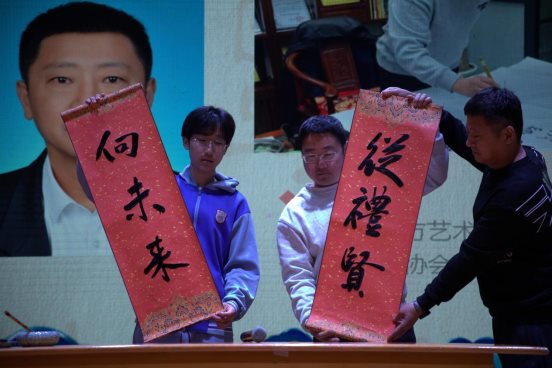 何未来
從禮賢
方艺术
协会